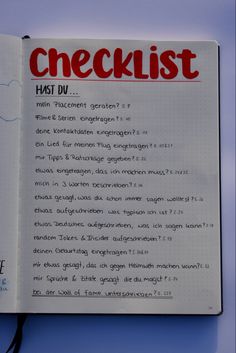 checklist
HAST DU...
mein Placement geraten? S. 8
Filme & Serien eingetragen? S.
deine Kontaktdaten eingetragen? S.
ein Lied für meinen Flug eingetragen? S.
mir Tipps & Ratschläge gegeben? S.
etwas eingetragen, das ich machen muss? S.
mich in 3 Worten beschrieben? S.
etwas gesagt, was du schon immer sagen wolltest? S.
etwas aufgeschrieben was typisch ich ist? S.
etwas Deutsches aufgeschrieben, was ich sagen kann? S.
random Jokes & Insider aufgeschrieben? S.
deinen Geburtstag eingetragen? S.
mir etwas gesagt, das ich gegen Heimweh machen kann? S.
mir Sprüche & Zitate gesagt die du magst? S.
bei der Wall of Fame unterschrieben? S.